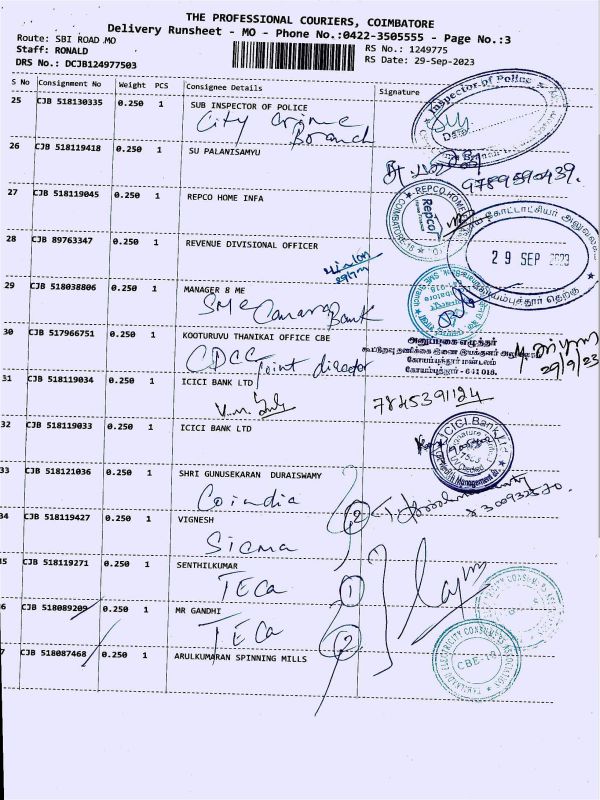 THE PROFESSIONAL COURIERS, COIMBATORE
Delivery Runsheet - MO - Phone No.:0422-3505555 - Page No.:3
Route: SBI ROAD MO
RS No.: 1249775
Staff: RONALD
RS Date: 29-Sep-2023
DRS No.: DCJB124977503
S No Consignment No Weight PCS Consignee Details Signature
25 CJB 518130335 0.250 1 SUB INSPECTOR OF POLICE
City Crime Branch
Inspector of Police
26 CJB 518119418 0.250 1 SU PALANISAMYU
9789590439.
27 CJB 518119045 0.250 1 REPCO HOME INFA
REPCO HOME
Repco
28 CJB 89763347 0.250 1 REVENUE DIVISIONAL OFFICER
கோட்டாட்சியர் அலுவலகம்
29 SEP 2023
கோயம்புத்தூர் தெற்கு
29 CJB 518038806 0.250 1 MANAGER 8 ME
SME Canara Bank
30 CJB 517966751 0.250 1 KOOTURUVU THANIKAI OFFICE CBE
CDCC Joint director
அனுப்புகை எழுத்தர்
கூட்டுறவு தணிக்கை இணை இயக்குனர் அலுவலகம்
கோயம்புத்தூர் மண்டலம்
கோயம்புத்தூர் - 641 018.
29/9/23
31 CJB 518119034 0.250 1 ICICI BANK LTD
7845391124
32 CJB 518119033 0.250 1 ICICI BANK LTD
ICICI Bank Ltd
33 CJB 518121036 0.250 1 SHRI GUNUSEKARAN DURAISWAMY
Coindia
2
34 CJB 518119427 0.250 1 VIGNESH
Sicma
35 CJB 518119271 0.250 1 SENTHILKUMAR
TECA
1
36 CJB 518089209 0.250 1 MR GANDHI
TECA
2
37 CJB 518087468 0.250 1 ARULKUMARAN SPINNING MILLS
TAMILNADU ELECTRICITY CONSUMERS ASSOCIATION
CBE-18